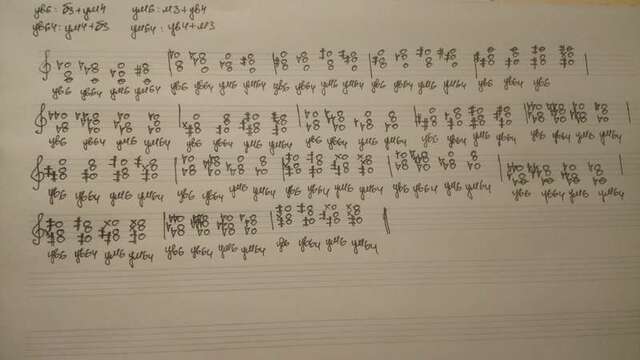 ув6: б3+ум4 ум6: м3+ув4
ув64: ум4+б3 ум64: ув4+м3
ув6 ув64 ум6 ум64 ув6 ув64 ум6 ум64 ув6 ув64 ум6 ум64 ув6 ув64 ум6 ум64 ув6 ув64 ум6 ув6
ув6 ув64 ум6 ум64 ув6 ув64 ум6 ум64 ув6 ув64 ум6 ум64 ув6 ув64 ум6 ум64 ув6 ув64 ум6 ум64
ув6 ув64 ум6 ум64 ув6 ув64 ум6 ум64 ув6 ув64 ум6 ум64 ув6 ув64 ум6 ум64 ув6 ув64 ум6 ум64
ув6 ув64 ум6 ум64 ув6 ув64 ум6 ум64 ув6 ув64 ум6 ум64